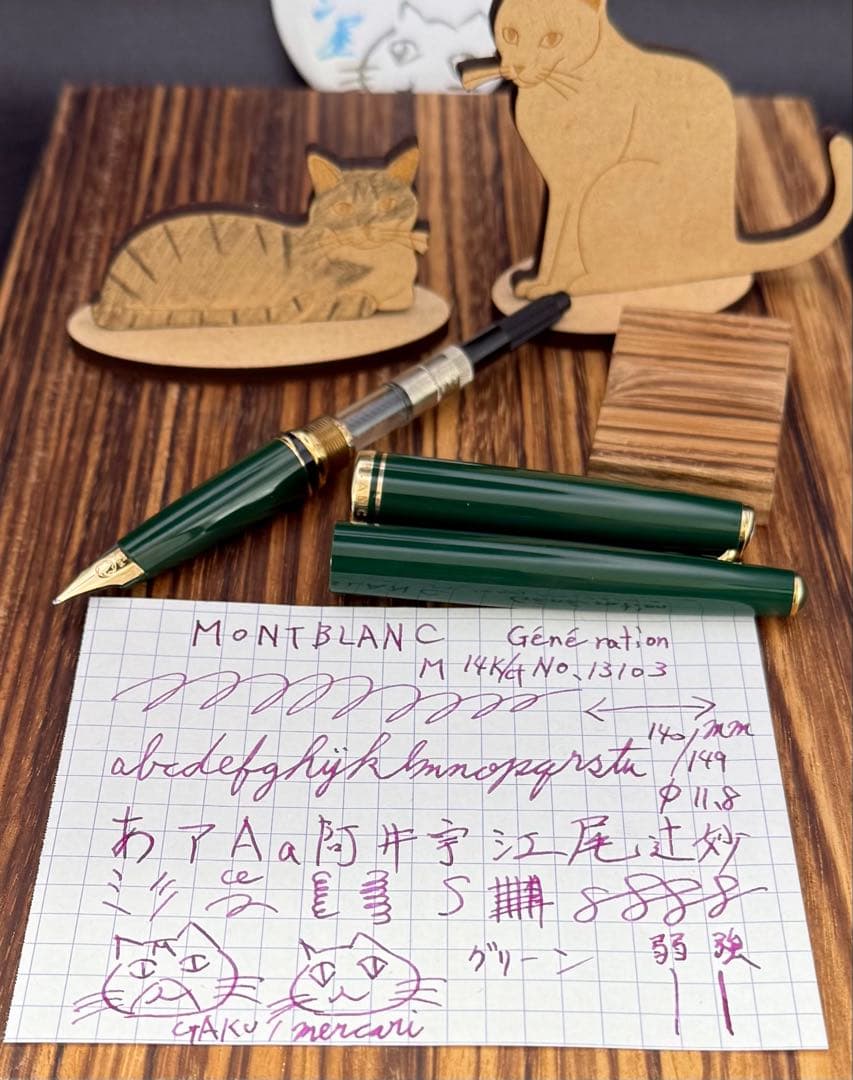 MONTBLANC Génération
M 14K/ct No.13103
140/149 mm
abcdefghijklmnopqrstu
φ 11.8
あ ア A a 阿 井 宇 江 尾 辻 妙
S
グリーン 弱 強
GAKU / mercari